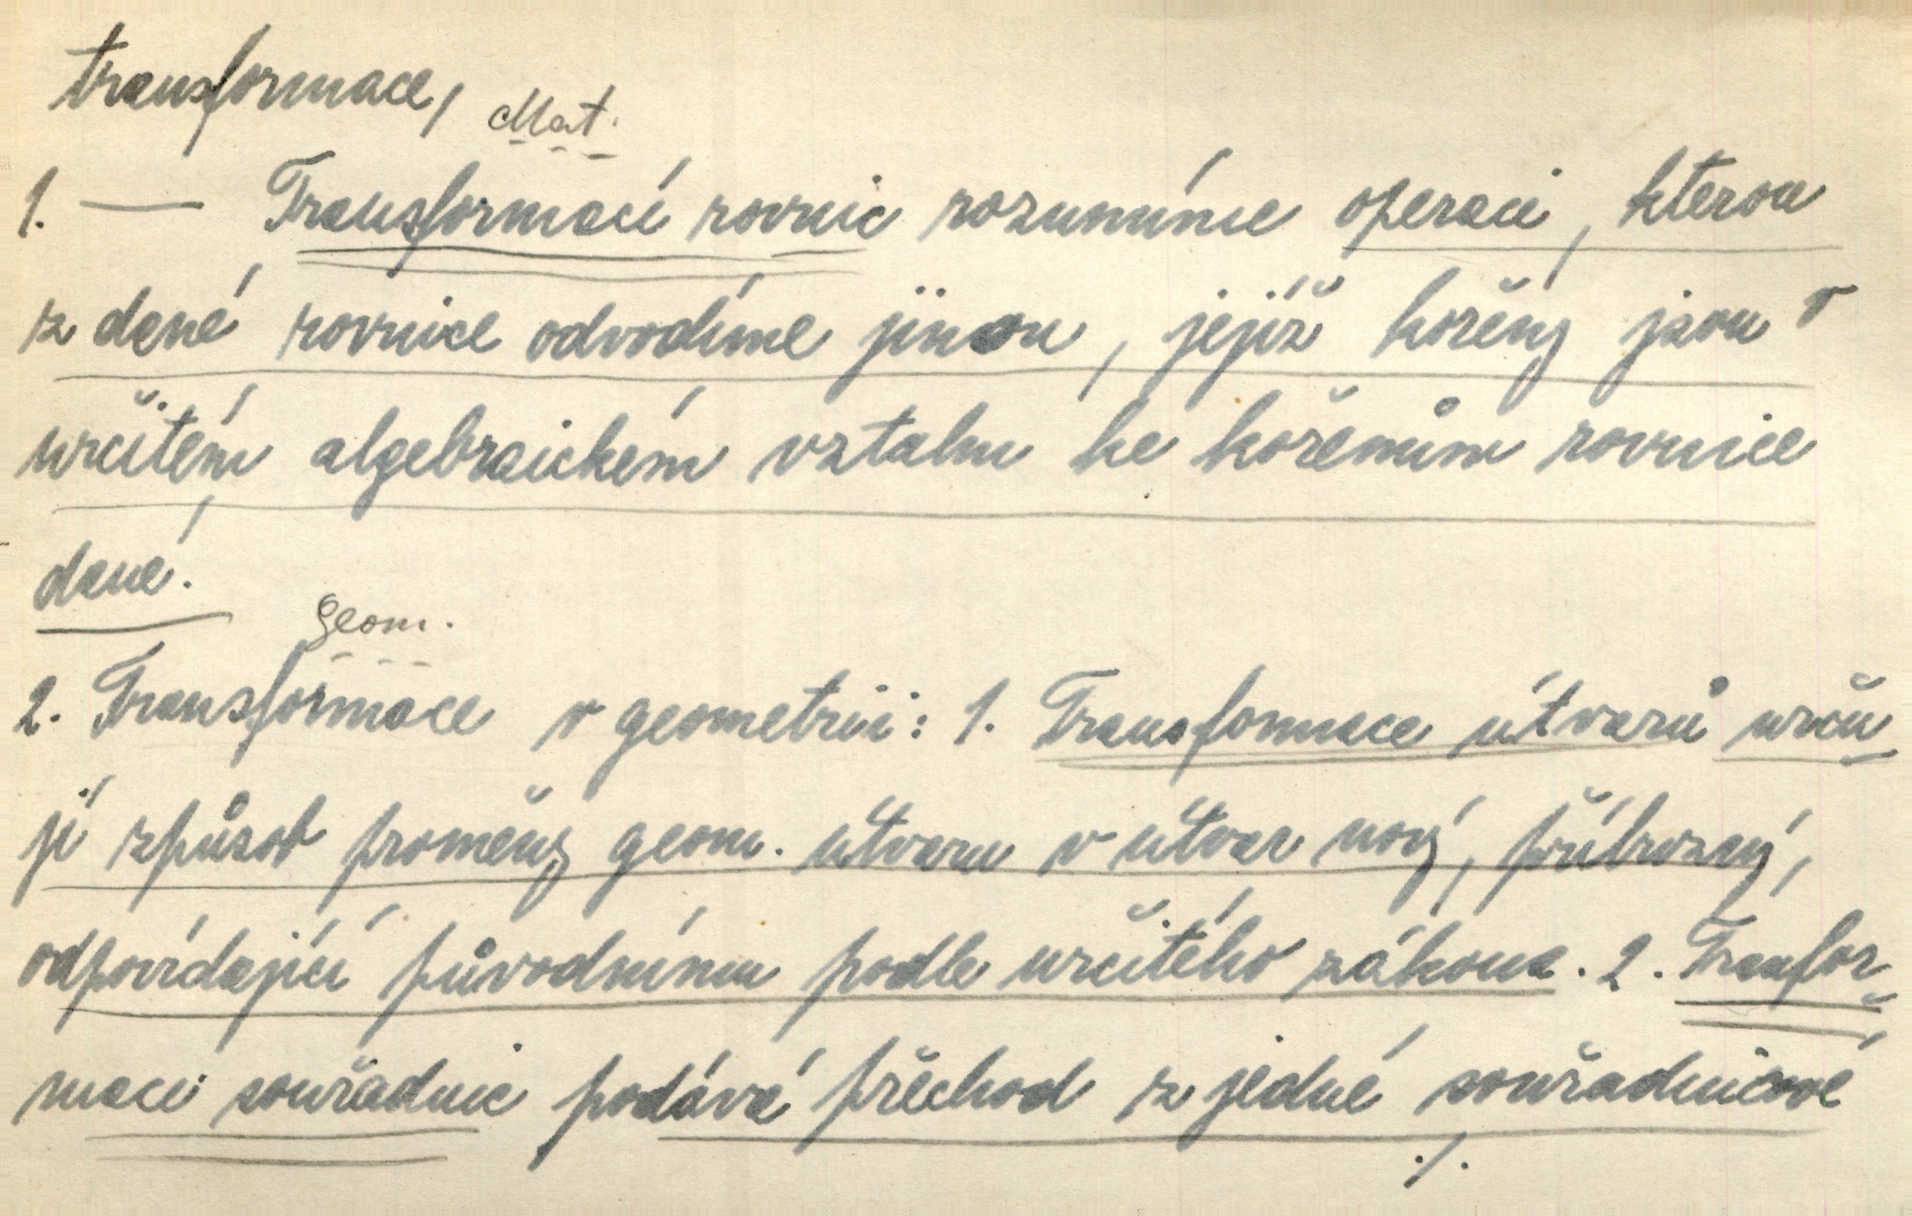 transformace,
Mat.
1. — Transformací rovnic rozumíme operaci, kterou
z dané rovnice odvodíme jinou, jejíž kořény jsou v
určitém algebraickém vztahu ke kořenům rovnice
dané.
geom.
2. Transformace v geometrii: 1. Transformace útvarů urču
jí způsob proměny geom. útvaru v útvar nový, příbuzný,
odpovídající původnímu podle určitého zákona. 2. Tranfor-
maci souřadnic podává přechod z jedné souřadnicové
./.